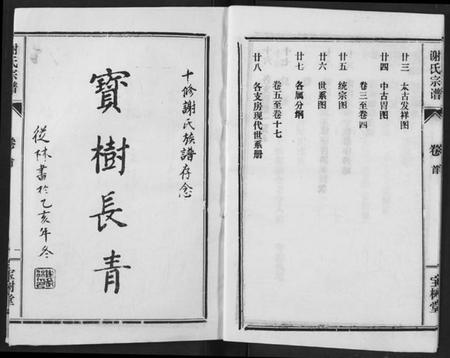 谢氏宗谱
卷首
宝树堂
廿三 太古发祥图
廿四 中古胄图
卷三至卷四
廿五 统宗图
廿六 世系图
廿七 各属分纲
卷五至卷十七
廿八 各支房现代世系册
十修謝氏族譜存念
寶樹長青
從林書於乙亥年冬
谢氏宗谱
卷首
二
宝树堂